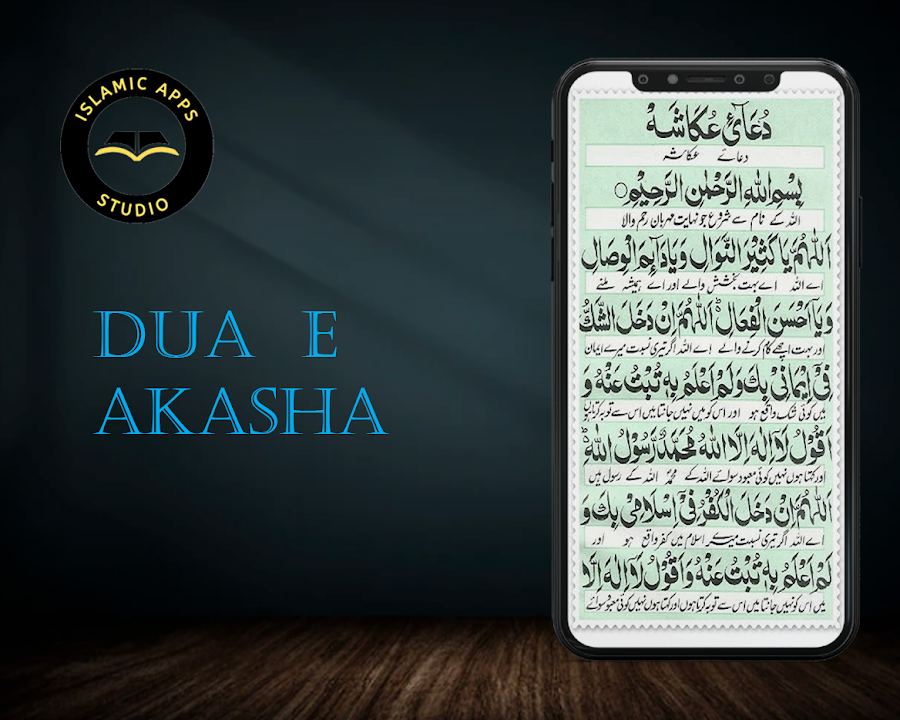 ISLAMIC APPS
STUDIO
DUA E
AKASHA
دُعَائِ عُكَاشَہ
دعائے عکاشہ
بِسْمِ اللّٰهِ الرَّحْمٰنِ الرَّحِيْمِ
اللہ کے نام سے شروع جو نہایت مہربان رحم والا
اَللّٰهُمَّ يَا كَثِيْرَ النَّوَالِ وَيَا دَآئِمَ الْوِصَالِ
اے اللہ اے بہت بخشش والے اور اے ہمیشہ ملنے
وَيَا حَسَنَ الْفِعَالِ اَللّٰهُمَّ اِنْ دَخَلَ الشَّكُّ
اور بہت اچھے کام کرنے والے اے اللہ اگر تیری نسبت میرے ایمان
فِيْ اِيْمَانِيْ بِكَ وَلَمْ اَعْلَمْ بِهٖ تُبْتُ عَنْهُ وَ
میں کوئی شک واقع ہو اور اس کو میں نہیں جانتا میں اس سے توبہ کرتا ہوں
اَقُوْلُ لَآ اِلٰهَ اِلَّا اللّٰهُ مُحَمَّدٌ رَّسُوْلُ اللّٰهِ
اور کہتا ہوں نہیں کوئی معبود سوائے اللہ کے محمدؐ اللہ کے رسول ہیں
اَللّٰهُمَّ اِنْ دَخَلَ الْكُفْرُ فِيْ اِسْلَامِيْ بِكَ وَ
اے اللہ اگر تیری نسبت میرے اسلام میں کفر واقع ہو اور
لَمْ اَعْلَمْ بِهٖ تُبْتُ عَنْهُ وَاَقُوْلُ لَآ اِلٰهَ اِلَّا
میں اس کو نہیں جانتا میں اس سے توبہ کرتا ہوں اور کہتا ہوں نہیں کوئی معبود سوائے